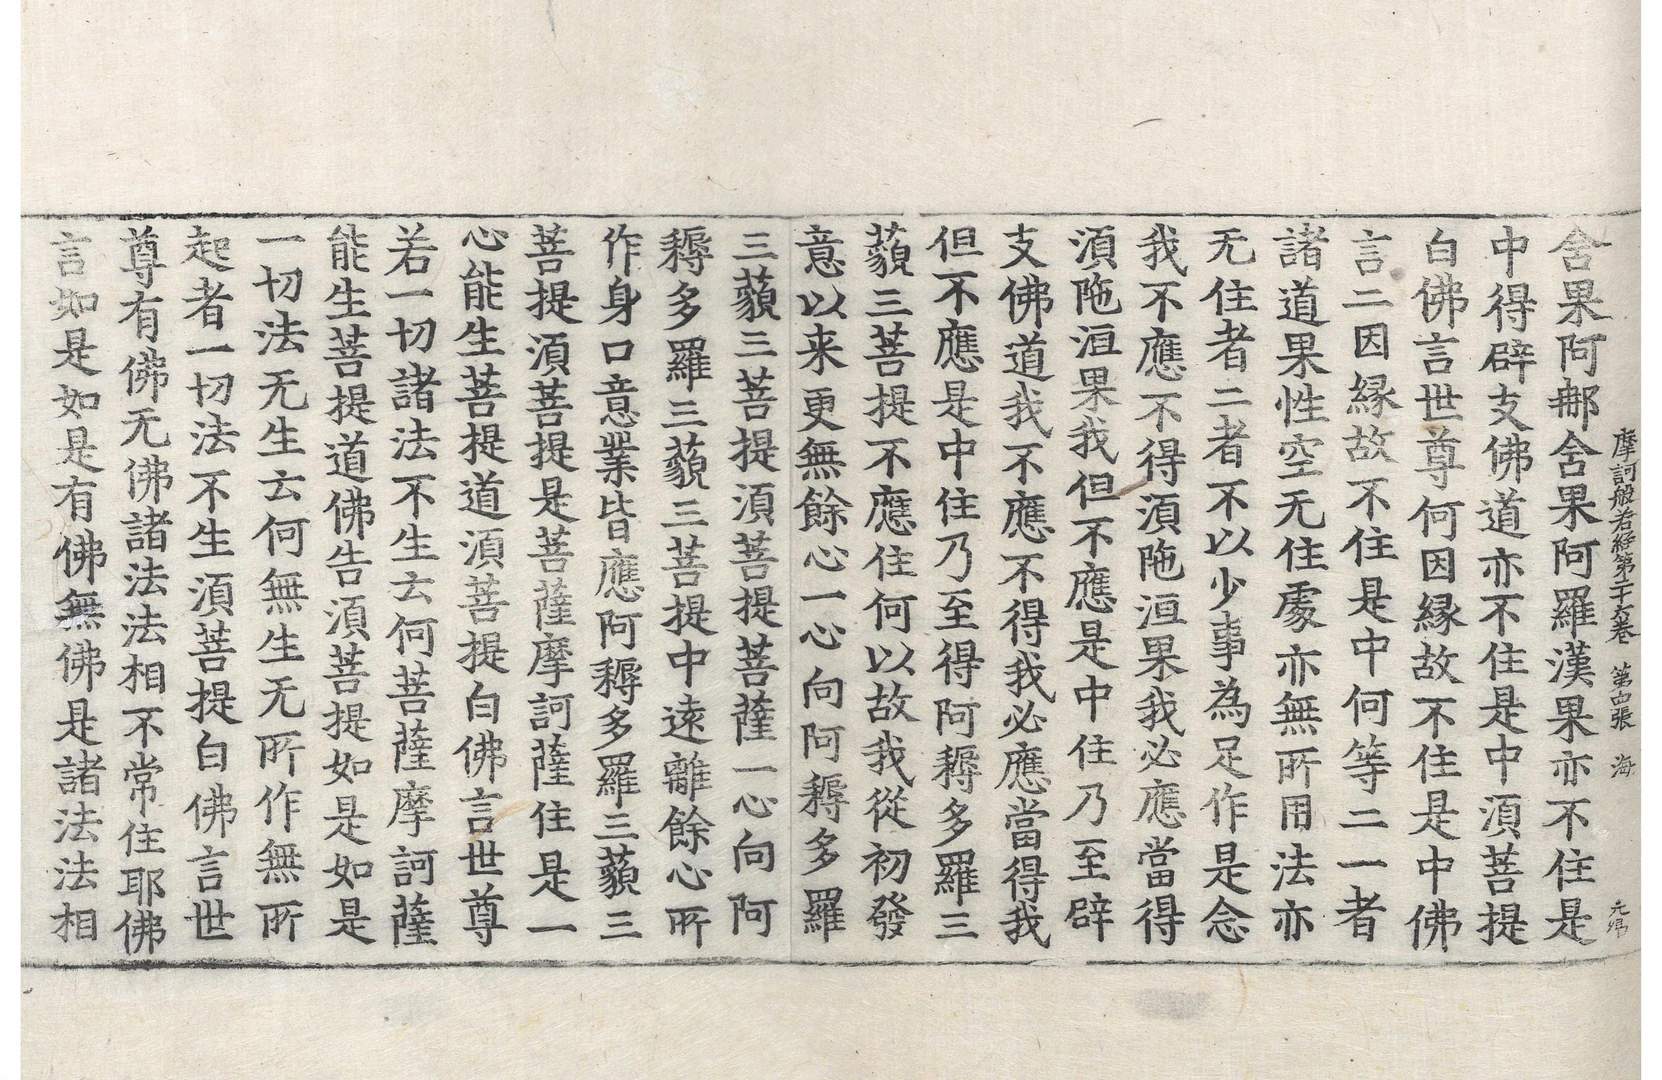 摩訶般若経第二十六卷 第四張 海
舍果阿𨚗舍果阿羅漢果亦不住是
中得辟支佛道亦不住是中湏菩提
白佛言世尊何因縁故不住是中佛
言二因縁故不住是中何等二一者
諸道果性空无住處亦無所用法亦
无住者二者不以少事為足作是念
我不應不得湏陁洹果我必應當得
湏陁洹果我但不應是中住乃至辟
支佛道我不應不得我必應當得我
但不應是中住乃至得阿耨多羅三
藐三菩提不應住何以故我從初發
意以来更無餘心一心向阿耨多羅
三藐三菩提湏菩提菩薩一心向阿
耨多羅三藐三菩提中遠離餘心所
作身口意業皆應阿耨多羅三藐三
菩提湏菩提是菩薩摩訶薩住是一
心能生菩提道湏菩提白佛言世尊
若一切諸法不生云何菩薩摩訶薩
能生菩提道佛告湏菩提如是如是
一切法无生云何無生无所作無所
起者一切法不生湏菩提白佛言世
尊有佛无佛諸法法相不常住耶佛
言如是如是有佛無佛是諸法法相